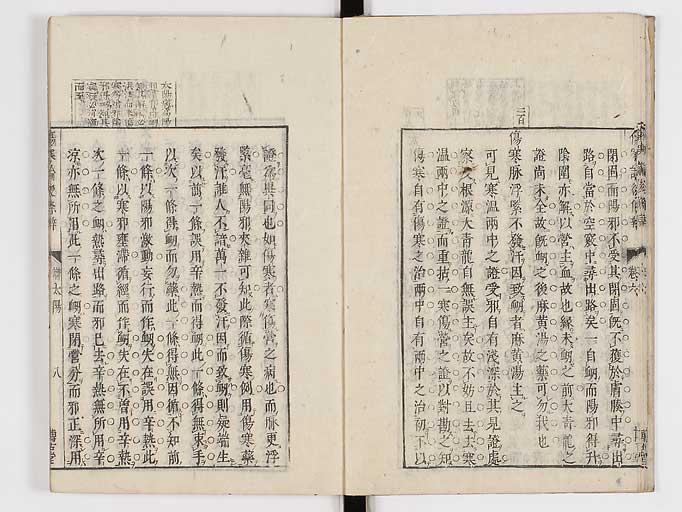 閉固而陽邪不受其閉固既不獲於膚腠中尋出
路自當於空竅中尋出路矣一自衄而陽邪得升
陰固亦解以營主血故也緣未衄之前大青龍之
證尚未全故既衄之後麻黃湯之藥可勿我也
傷寒脉浮緊不發汗因致衄者麻黃湯主之
可見寒温兩中之證受邪自有淺深於其見證處
家久根源大青龍自無誤主矣故不妨且去去寒
温兩中之證而重拈一寒傷營之證以對勘之知
傷寒自有傷寒之治兩中自有兩中之治初不以
二百
卷六
證為異同也如傷寒者寒傷營之病也而脉更浮
緊毫無陽邪夾雜可知此際循傷寒例用傷寒藥
發汗誰人不諳萬一不發汗因而致衄則疑端生
矣以前一條誤用辛熱而得衄此一條得無束手
以次一條得衄而勿藥此一條得無因循不知前
一條以陽邪激動妄行而作衄失在誤用辛熱此
一條以寒邪壅滯循經而作衄失在不曾用辛熱
次一條之衄熱尋出路而邪已去辛熱無所用辛
涼亦無所用此一條之衄寒閉營分而邪正深用
太陽
八